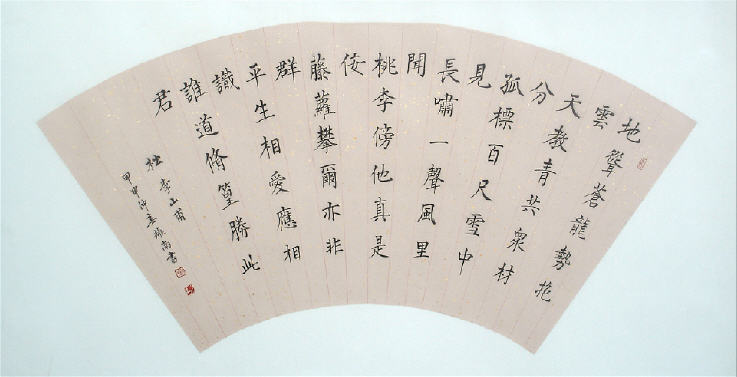 地聳蒼龍勢抱
雲
天教青共衆材
分
孤標百尺雪中
見
長嘯一聲風里
聞
桃李傍他真是
佞
藤蘿攀爾亦非
群
平生相愛應相
識
誰道脩篁勝此
君
松 李山甫
甲申仲春 尚書